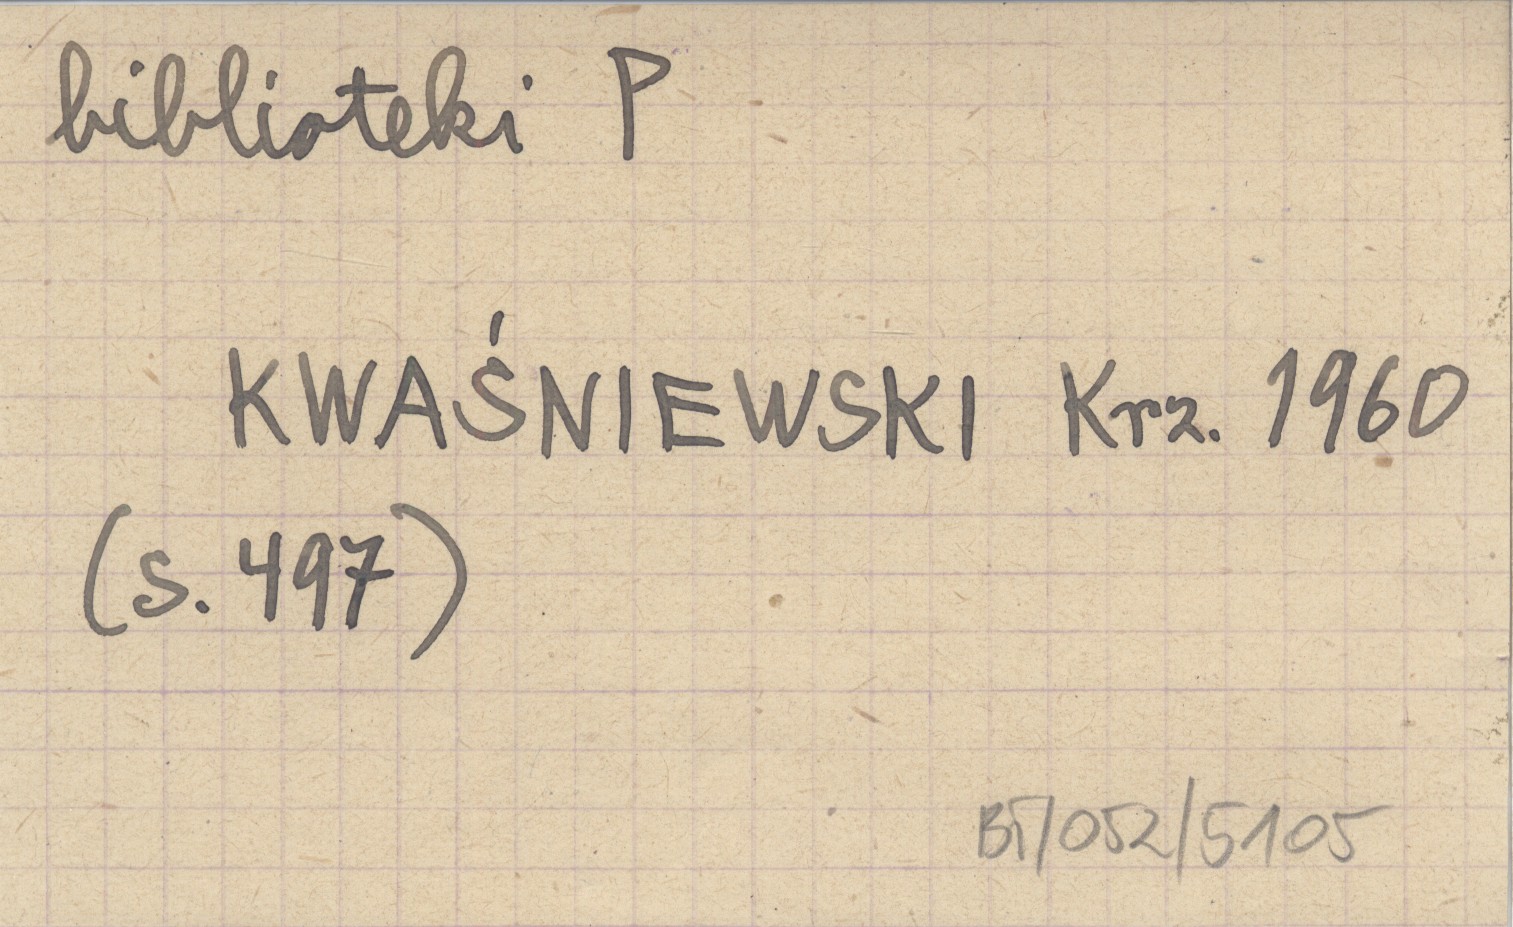 biblioteki P
KWAŚNIEWSKI Krz. 1960
(s. 497)
BT/052/5105